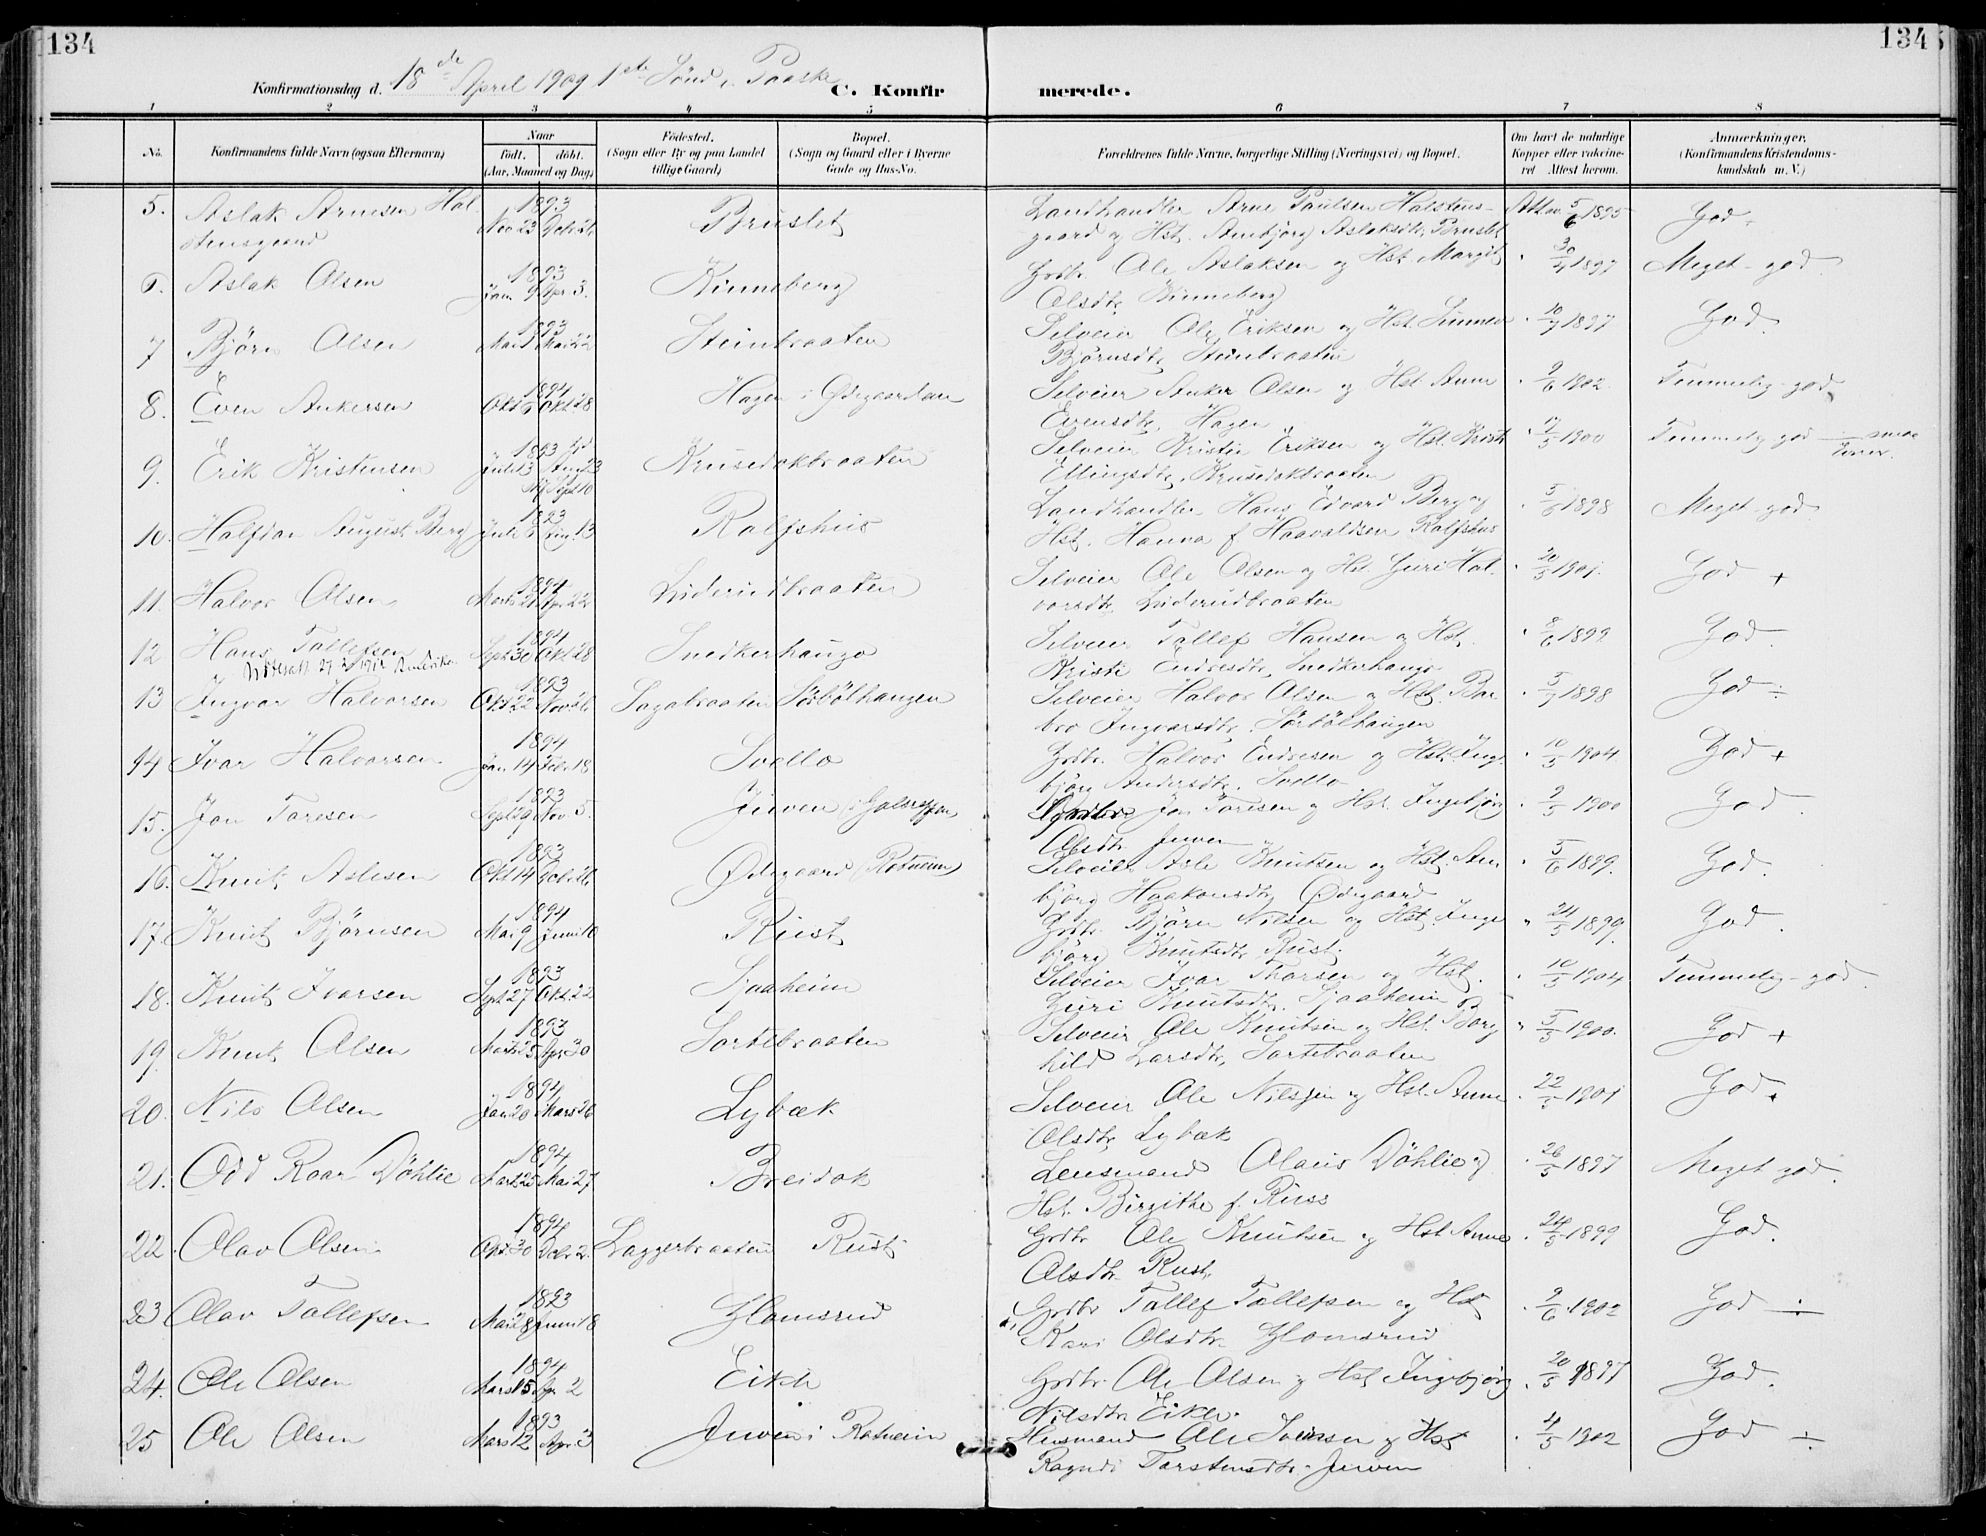 134
134
Konfirmationsdag d. 18de April 1909 1ste Sönd. i Paaske C. Konfirmerede.
1 2 3 4 5 6 7 8
No. Konfirmandens fulde Navn (ogsaa Efternavn) Naar födt. döbt. (Aar, Maaned og Dag) Födested. (Sogn eller By og paa Landet tillige Gaard) Bopæl. (Sogn og Gaard eller i Byerne Gade og Hus-No.) Forældrenes fulde Navne, borgerlige Stilling (Næringsvei) og Bopæl. Om havt de naturlige Kopper eller vaccineret Attest herom. Anmærkninger. (Konfirmandens Kristendomskundskab m. V.)
5. Aslak Arnesen Hal- 1893 Nov 23 Dcbr 26 Bruslet Landhandler Arne Paulsen Halstens- Att av 5/6 1895 God ÷
stensgaard gaard og Hst. Aslaksdtr, Bruslet
6. Aslak Olsen 1893 Jan 9 Apr. 3. Kinneberg Grdbr. Ole Aslaksen og Hst. Margit " 30/4 1897 Meget-god.
Olsdtr. Kinneberg
7 Björn Olsen 1893 Mai 1 Mai 22 Steinbraaten Selveier Ole Eriksen og Hst. " 10/7 1897 God.
Björnsdtr. Steinbraaten
8. Even Ankersen 1894 Okt 6 Okt 28 Hagen i Ødegaarden Selveier Anker Olsen og Hst Anne " 9/6 1902. Temmelig-god.
Evensdtr. Hagen
9. Erik Kristensen 1893 Juli 13 Aug 23 Sept 10 Krusedokbraaten Selveier Kristen Eriksen og Hst. Kristi " 9/5 1900 Temmelig god
Ellingsdtr. Krusedokbraaten
10. Halfdan August Berg 1893 Juli 8 Aug. 13 Ralfshus Landhandler Hans Edvard Berg og " 5/6 1898 Meget-god.
Hst. Hanna f. Haavaldsen Ralfshus
11. Halvor Olsen 1894 Marts 21 Apr. 22 Liderudbraaten Selveier Ole Olsen og Hst. Guri Hal- " 20/5 1901. God +
vorsdtr. Liderudbraaten
12 Hans Tollefsen 1894 Sept 30 Okt 28 Snedkerhaugo Selveier Tollef Hansen og Hst. " 8/6 1899 God.
Utflytatt 27 1912 Amerika Kristi Endresdtr, Snedkerhaugo
13 Ingvar Halvorsen 1893 Okt 22 Nov. 26 Sagabraaten Sörbölhaugen Selveier Halvor Olsen og Hst. Bar- " 5/7 1898 God ÷
bro Ingvarsdtr. Sörbölhaugen
14 Ivar Halvorsen 1894 Jan. 14 Febr 18 Svello Grdbr. Halvor Endresen og Hst. Inge- " 10/5 1904 God +
björg Andersdtr. Svello
15. Jon Toresen 1893 Sept 29 Nov. 5. Juven i Jon Toresen og Hst. Ingebjörg " 9/5 1900 God.
Olsdtr. Juven
16. Knut Aslesen 1893 Okt 14 Dcbr 26 Ødegaard (Rotneim) Selveier Asle Knutsen og Hst. Am- " 5/6 1899. God.
björg Haakonsdtr. Ødegaard
17. Knut Björnsen 1894 Mai 9 Juni 10 Rust Grdbr. Björn Nilsen og Hst. Inge- " 24/5 1899. God.
björg Knutsdtr. Rust.
18. Knut Ivarsen 1893 Sept 27 Okt. 22 Sjaaheim Selveier Ivar Thorsen og Hst. " 10/5 1904 Temmelig-god.
Guri Knutsdtr. Sjaaheim
19. Knut Olsen 1893 Marts 25 Apr 30 Sortebraaten Selveier Ole Knutsen og Hst. Borg- " 5/5 1900. God +
hild Larsdtr. Sortebraaten
20. Nils Olsen 1894 Jan 20 Mars 26 Lybæk Selveier Ole Nilssen og Hst. Anne " 22/5 1901 God.
Olsdtr. Lybæk
21. Odd Roar Döhlie 1894 Marts 25 Mai 27 Breidok Lensmand Olaus Döhlie og " 26/5 1897 Meget god.
Hst. Birgithe f. Russ
22. Olav Olsen 1894 Okt. 30 Dcbr 2. Laggerbraaten Rust Grdbr Ole Knutsen og Hst Anne " 24/5 1899 God.
Olsdtr. Rust.
23 Olav Tollefsen 1893 Mai 28 Juni 18 Glomsrud Grdbr Tollef Tollefsen og Hst " 2/6 1902 God ÷
Kari Olsdtr. Glomsrud
24. Ole Olsen 1894 Mars 15 Apr 2 Eikle Grdbr. Ole Olsen og Hst Ingebjörg " 20/5 1897 God.
Nilsdtr Eikle.
25 Ole Olsen 1893 Mars 12 Apr. 3 Juven i Rotneim Husmand Ole Iversen og Hst " 4/5 1902 God ÷
Ragndi Torstensdtr. Juven